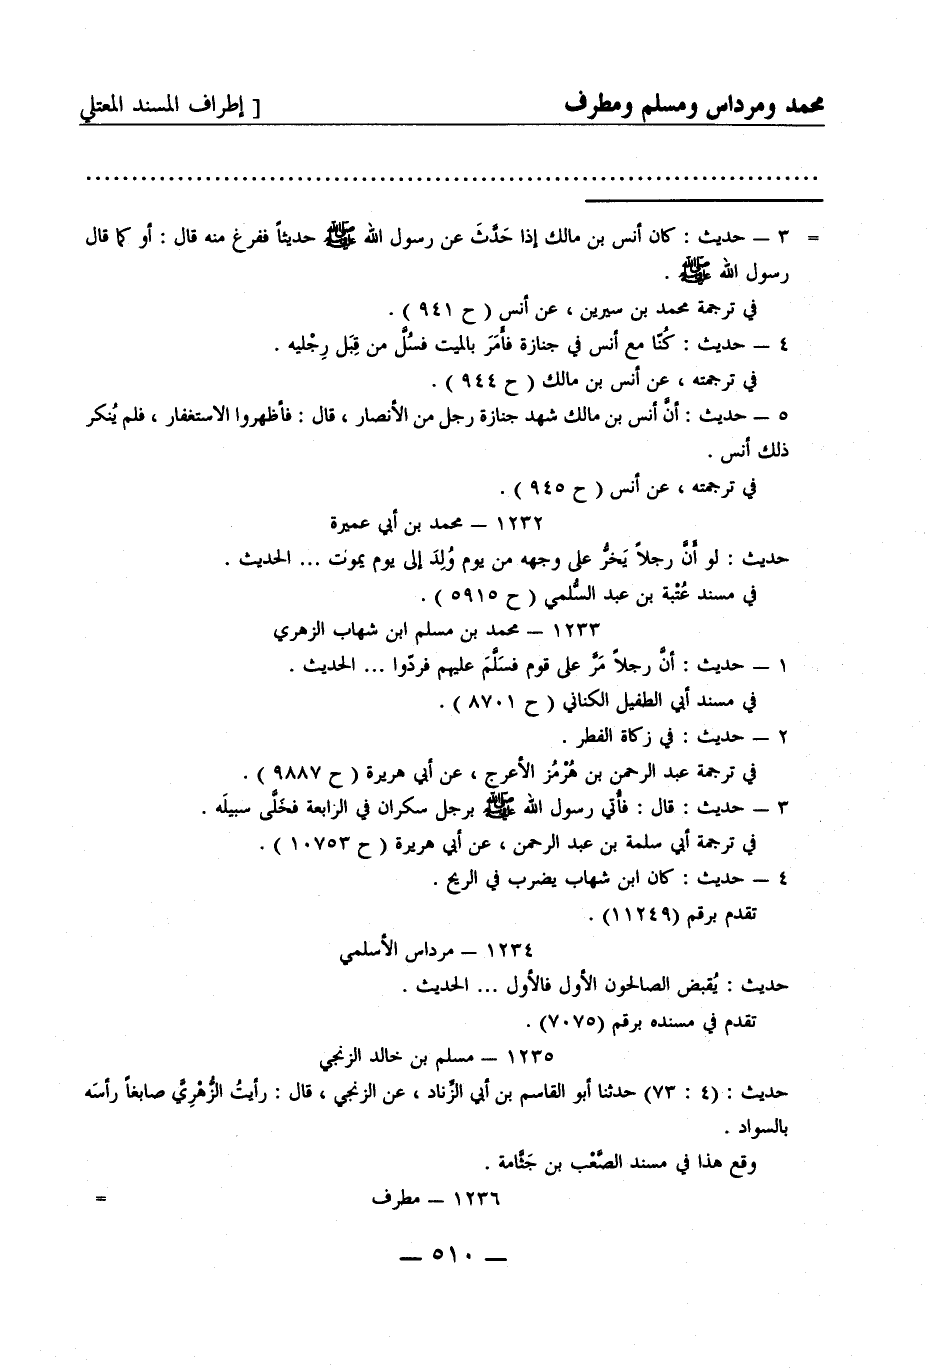 محمد ومرداس ومسلم ومطرف [ إطراف المسند المعتلي
................................................................................
= ٣ ــ حديث : كان أنس بن مالك إذا حَدَّثَ عن رسول الله ﷺ حديثاً ففرغ منه قال : أو كما قال
رسول الله ﷺ .
في ترجمة محمد بن سيرين ، عن أنس ( ح ٩٤١ ) .
٤ ــ حديث : كُنّا مع أنس في جنازة فأَمَرَ بالميت فسُلَّ من قِبَل رِجْليه .
في ترجمته ، عن أنس بن مالك ( ح ٩٤٤ ) .
٥ ــ حديث : أنَّ أنس بن مالك شهد جنازة رجل من الأنصار ، قال : فأظهروا الاستغفار ، فلم يُنكر
ذلك أنس .
في ترجمته ، عن أنس ( ح ٩٤٥ ) .
١٢٣٢ ــ محمد بن أبي عميرة
حديث : لو أَنَّ رجلاً يَخرُّ على وجهه من يوم وُلِدَ إلى يوم يموت ... الحديث .
في مسند عُتْبة بن عبد السُّلمي ( ح ٥٩١٥ ) .
١٢٣٣ ــ محمد بن مسلم ابن شهاب الزهري
١ ــ حديث : أنَّ رجلاً مَرَّ على قوم فسَلَّمَ عليهم فردّوا ... الحديث .
في مسند أبي الطفيل الكناني ( ح ٨٧٠١ ) .
٢ ــ حديث : في زكاة الفطر .
في ترجمة عبد الرحمن بن هُرْمُز الأعرج ، عن أبي هريرة ( ح ٩٨٨٧ ) .
٣ ــ حديث : قال : فأُتي رسول الله ﷺ برجل سكران في الرابعة فخَلَّى سبيلَه .
في ترجمة أبي سلمة بن عبد الرحمن ، عن أبي هريرة ( ح ١٠٧٥٣ ) .
٤ ــ حديث : كان ابن شهاب يضرب في الريح .
تقدم برقم (١١٢٤٩) .
١٢٣٤ ــ مرداس الأسلمي
حديث : يُقبض الصالحون الأول فالأول ... الحديث .
تقدم في مسنده برقم (٧٠٧٥) .
١٢٣٥ ــ مسلم بن خالد الزنجي
حديث : (٤ : ٧٣) حدثنا أبو القاسم بن أبي الزِّناد ، عن الزنجي ، قال : رأيتُ الزُّهْريَّ صابغاً رأسَه
بالسواد .
وقع هذا في مسند الصَّعْب بن جَثَّامة .
١٢٣٦ ــ مطرف =
ــ ٥١٠ ــ